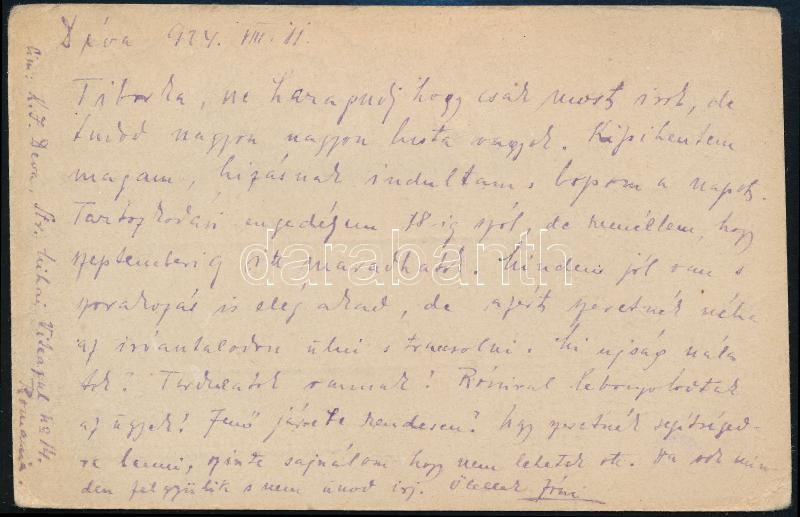 Déva 924. VIII. 11.
Tiborka, ne harapudj hogy csak most irok, de
tudod nagyon nagyon lusta vagyok. Kipihentem
magam, hizásnak indultam s lopom a napot.
Tartózkodási engedélyem 18-ig szól, de remélem, hogy
szeptemberig itt maradhatok. Minden jól van s
szorakozás is elég akad, de azért szeretnék néha
az iróasztalodon ülni s trancsolni. Mi ujság nála
tok? vannak? Rózival lebonyolodtak
az ügyek? Jenő rendesen? Ugy szeretnék segitséged-
re lenni, szinte sajnálom hogy nem lehetek ott. Ha sok min
den felgyülik s nem unod irj. Ölellek
Cim: K.J. Deva, Str. Mihai Viteazul No 14.
Romania.
darabanth